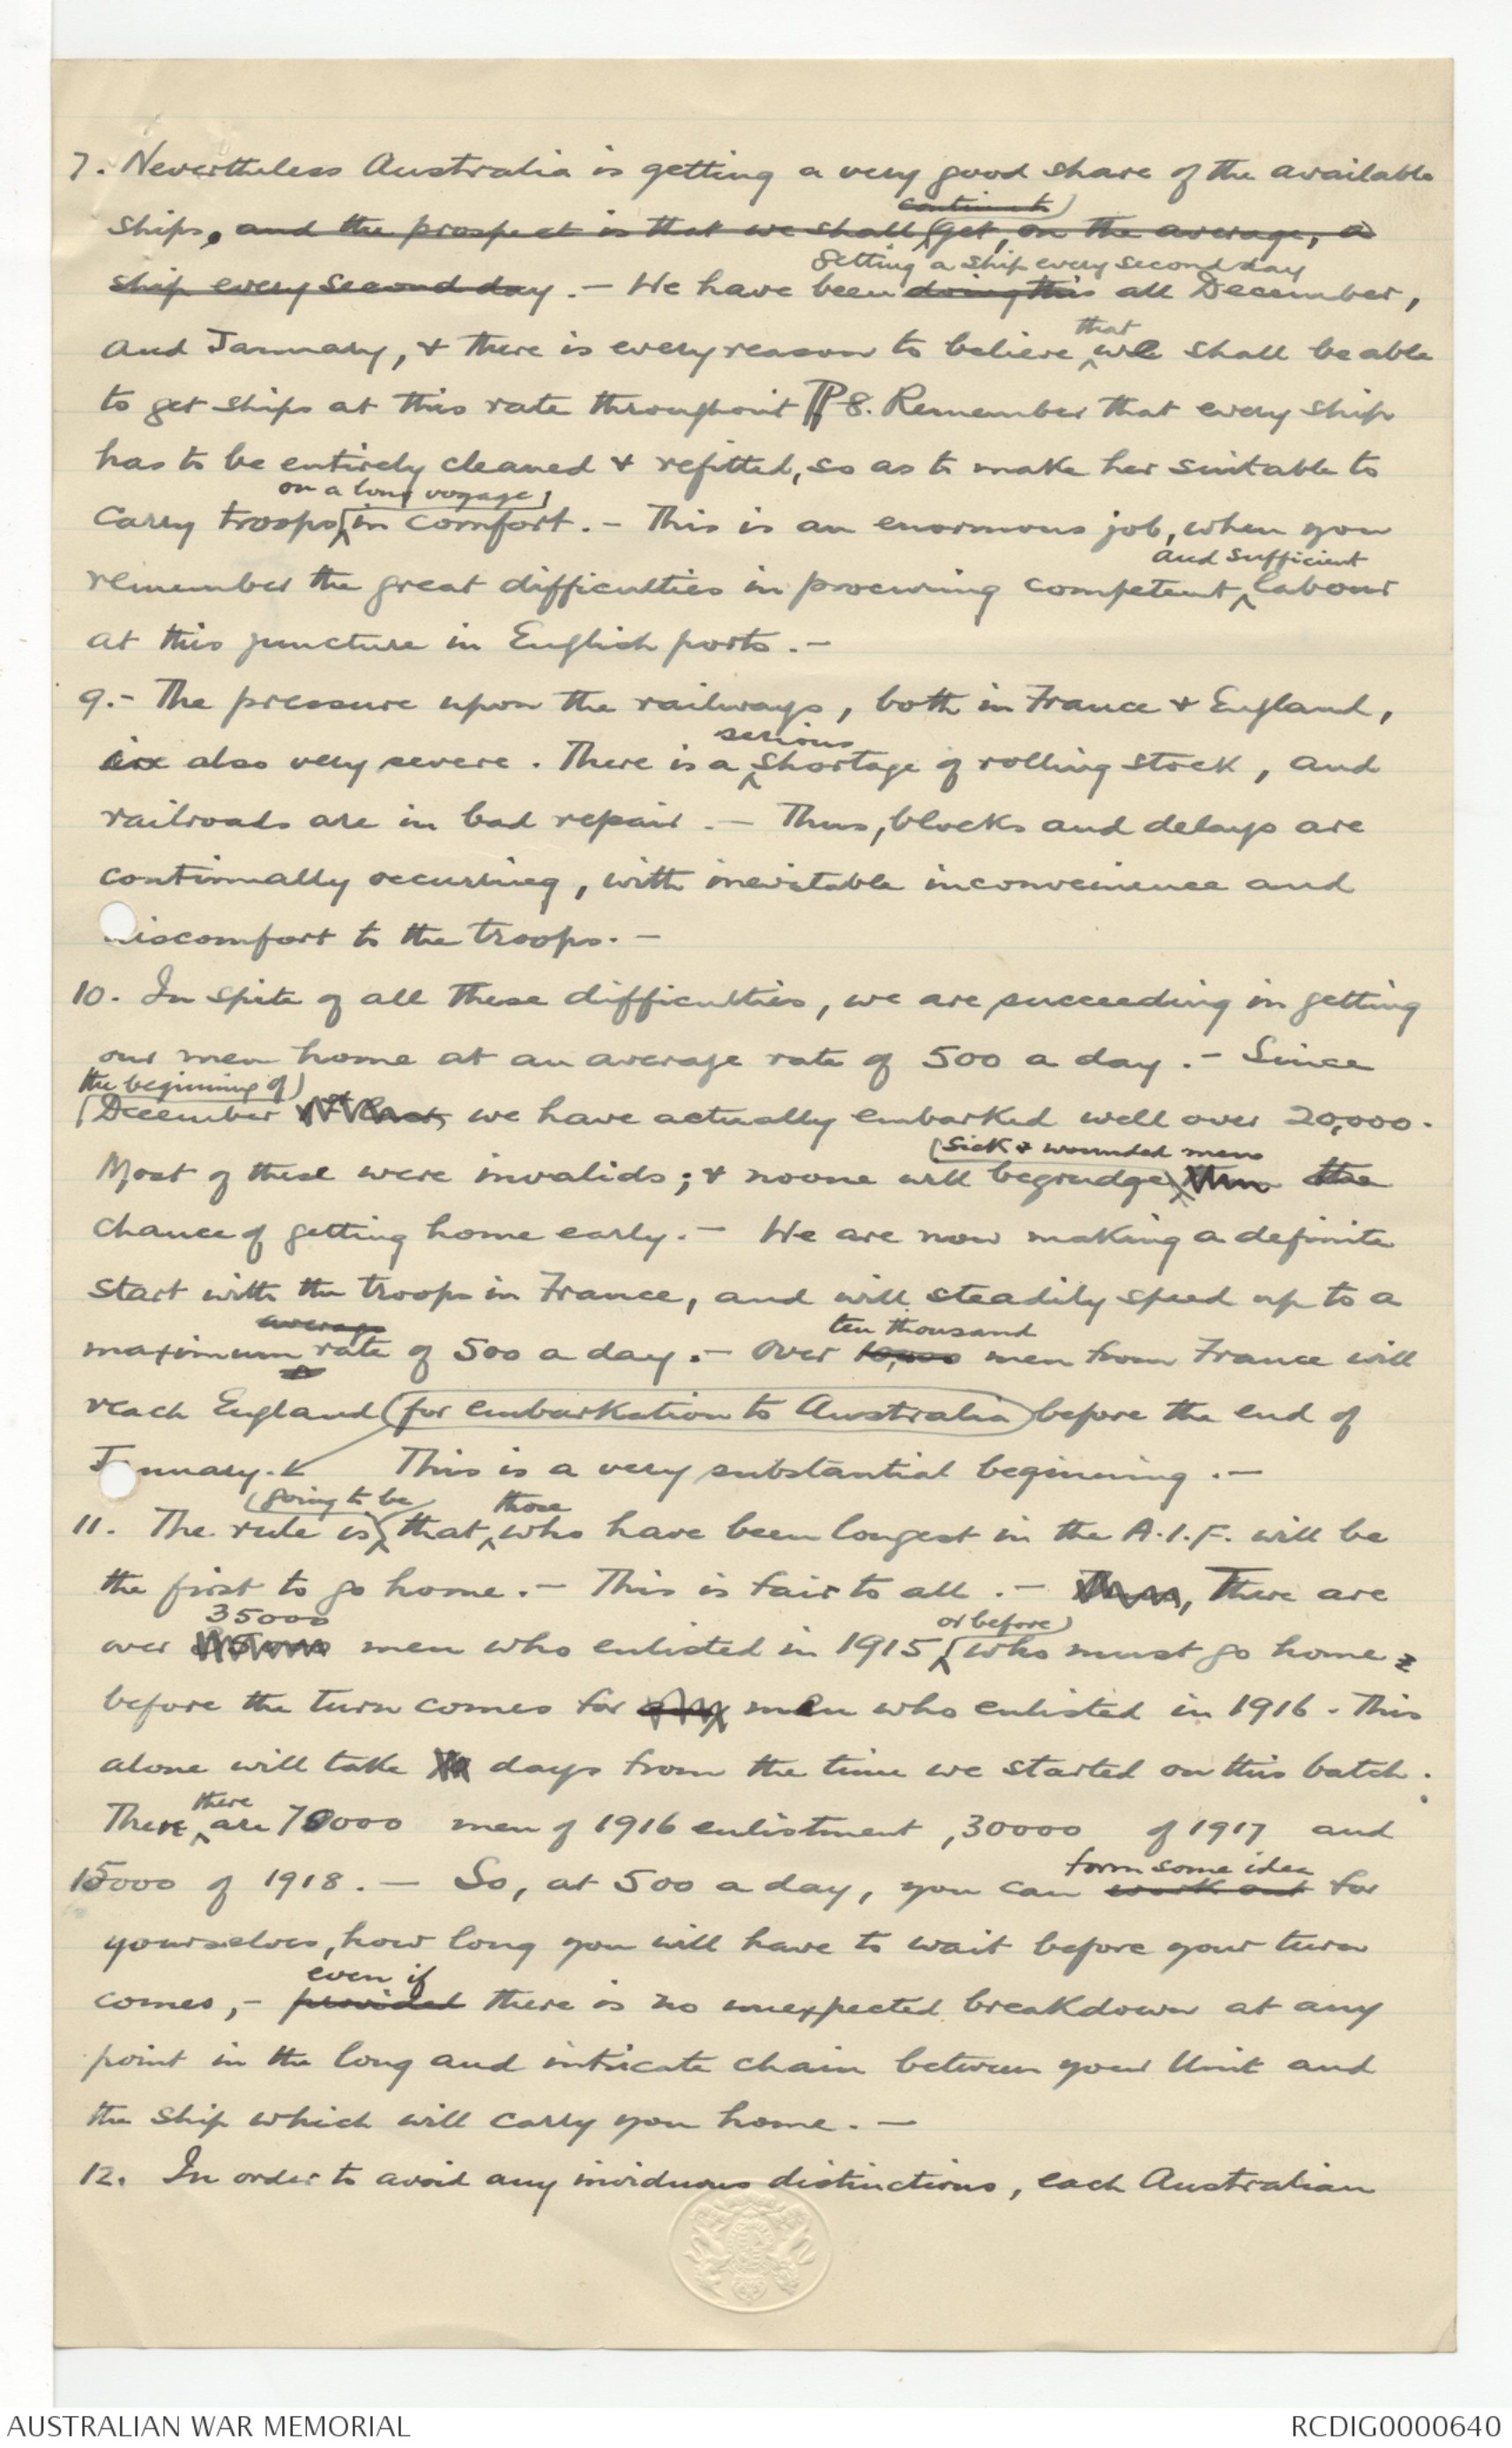 7. Nevertheless Australia is getting a very good share of the available
continue to
ships, and the prospect is that we shall get, on the average, a
getting a ship every second day
ship every second day. - We have been doing this all December,
that
and January, & there is every reason to believe we shall be able
to get ships at this rate throughout 8. Remember that every ship
has to be entirely cleaned & refitted, so as to make her suitable to
on a long voyage
carry troops in comfort. - This is an enormous job, when you
and sufficient
remember the great difficulties in procuring competent labour
at this juncture in English ports. -
9. - The pressure upon the railways, both in France & England,
serious
is also very severe. There is a shortage of rolling stock, and
railroads are in bad repair. - Thus, blocks and delays are
continually occurring, with inevitable inconvenience and
discomfort to the troops. -
10. In spite of all these difficulties, we are succeeding in getting
our men home at an average rate of 500 a day. - Since
the beginning of
December we have actually embarked well over 20,000.
sick & wounded men
Most of these were invalids; & noone will begrudge the
chance of getting home early. - We are now making a definite
start with the troops in France, and will steadily speed up to a
average ten thousand
maximum rate of 500 a day. - Over 10,000 men from France will
reach England for embarkation to Australia before the end of
January. This is a very substantial beginning. -
going to be those
11. The rule is that who have been longest in the A.I.F. will be
the first to go home. - This is fair to all. - There are
35000 or before
over men who enlisted in 1915 who must go home
before the turn comes for men who enlisted in 1916. This
alone will take days from the time we started on this batch.
there
Then are 70000 men of 1916 enlistment, 30000 of 1917 and
form some idea
15000 of 1918. - So, at 500 a day, you can work out for
yourselves, how long you will have to wait before your turn
even if
comes, - provided there is no unexpected breakdown at any
point in the long and intricate chain between your Unit and
the ship which will carry you home. -
12. In order to avoid any invidious distinctions, each Australian
AUSTRALIAN WAR MEMORIAL
RCDIG0000640